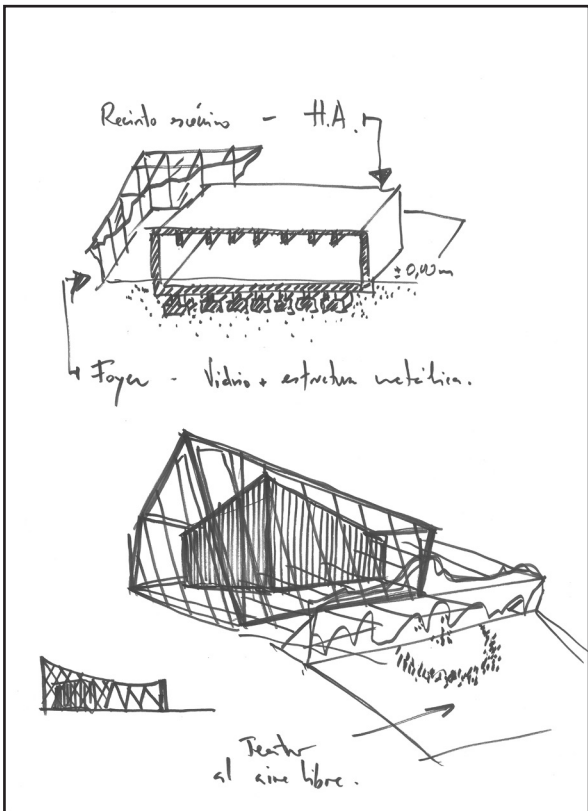 Recinto escénico - H.A.
± 0,00 m
Foyer - Vidrio + estructura metálica.
Teatro
al aire libre.